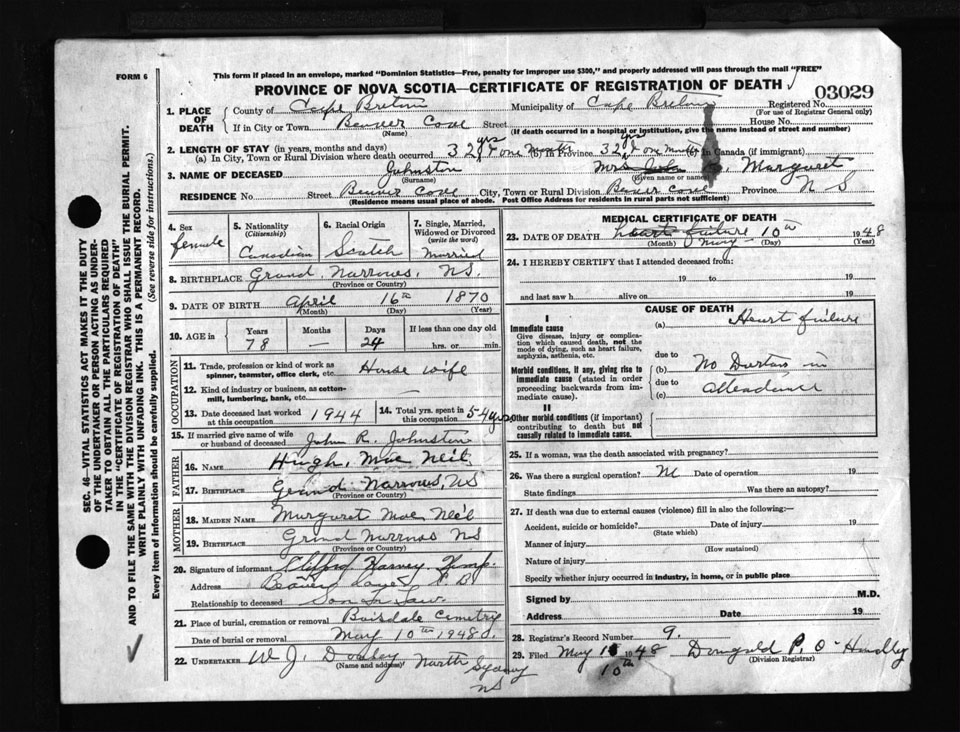 FORM 6
This form if placed in an envelope, marked "Dominion Statistics—Free, penalty for improper use $300," and properly addressed will pass through the mail "FREE"
PROVINCE OF NOVA SCOTIA—CERTIFICATE OF REGISTRATION OF DEATH
03029
1. PLACE OF DEATH
County of Cape Breton Municipality of Cape Breton Registered No.
(For use of Registrar General only)
If in City or Town Beaver Cove Street House No.
(Name) (If death occurred in a hospital or institution, give the name instead of street and number)
2. LENGTH OF STAY (in years, months and days)
(a) In City, Town or Rural Division where death occurred 32 yrs & one Month (b) in Province 32 yrs & one Month (c) in Canada (if immigrant)
3. NAME OF DECEASED Johnston Mrs John R. Margaret
(Surname) (Given name or names)
RESIDENCE No. Street Beaver Cove City, Town or Rural Division Beaver Cove Province N S
(Residence means usual place of abode. Post Office Address for residents in rural parts not sufficient)
4. Sex female
5. Nationality (Citizenship) Canadian
6. Racial Origin Scotch
7. Single, Married, Widowed or Divorced (write the word) Married
8. BIRTHPLACE Grand Narrows, NS.
(Province or Country)
9. DATE OF BIRTH April 16th 1870
(Month) (Day) (Year)
10. AGE in Years Months Days If less than one day old
78 — 24 hrs. or min.
OCCUPATION
11. Trade, profession or kind of work as spinner, teamster, office clerk, etc. House wife
12. Kind of industry or business, as cotton-mill, lumbering, bank, etc. —
13. Date deceased last worked at this occupation 1944
14. Total yrs. spent in this occupation 54 yrs
15. If married give name of wife or husband of deceased John R. Johnston
FATHER
16. NAME Hugh, Mac Neil
17. BIRTHPLACE Grand Narrows, NS
(Province or Country)
MOTHER
18. MAIDEN NAME Margaret Mac Neil
19. BIRTHPLACE Grand Narrows NS
(Province or Country)
20. Signature of informant Clifford Harvey
Address Beaver Cove C B
Relationship to deceased Son In Law.
21. Place of burial, cremation or removal Boisdale Cemetry
Date of burial or removal May 10th 1948
22. UNDERTAKER W J. Dooley North Sydney NS
(Name and address)
MEDICAL CERTIFICATE OF DEATH
23. DATE OF DEATH heart failure May 10th 1948
(Month) (Day) (Year)
24. I HEREBY CERTIFY that I attended deceased from:
19 to 19
and last saw h alive on 19
CAUSE OF DEATH
I
Immediate cause
Give disease, injury or complication which caused death, not the mode of dying, such as heart failure, asphyxia, asthenia, etc.
(a) Heart failure
due to
Morbid conditions, if any, giving rise to immediate cause (stated in order proceeding backwards from immediate).
(b) No Doctors in
due to
(c) attendance
II
Other morbid conditions (if important) contributing to death but not causally related to immediate cause.
25. If a woman, was the death associated with pregnancy?
26. Was there a surgical operation? Date of operation 19
State findings Was there an autopsy?
27. If death was due to external causes (violence) fill in also the following:—
Accident, suicide or homicide? Date of injury 19
(State which)
Manner of injury
(How sustained)
Nature of injury
Specify whether injury occurred in industry, in home, or in public place
Signed by M.D.
Address Date 19
28. Registrar's Record Number 9.
29. Filed May 10th 1948 P. O'Handley
(Division Registrar)
SEC. 46—VITAL STATISTICS ACT MAKES IT THE DUTY
OF THE UNDERTAKER OR PERSON ACTING AS UNDERTAKER TO OBTAIN ALL THE PARTICULARS REQUIRED
IN THE "CERTIFICATE OF REGISTRATION OF DEATH"
AND TO FILE THE SAME WITH THE DIVISION REGISTRAR WHO SHALL ISSUE THE BURIAL PERMIT.
WRITE PLAINLY WITH UNFADING INK. THIS IS A PERMANENT RECORD.
Every item of information should be carefully supplied. (See reverse side for instructions.)